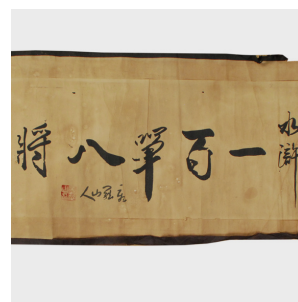 水滸一百單八將
山人